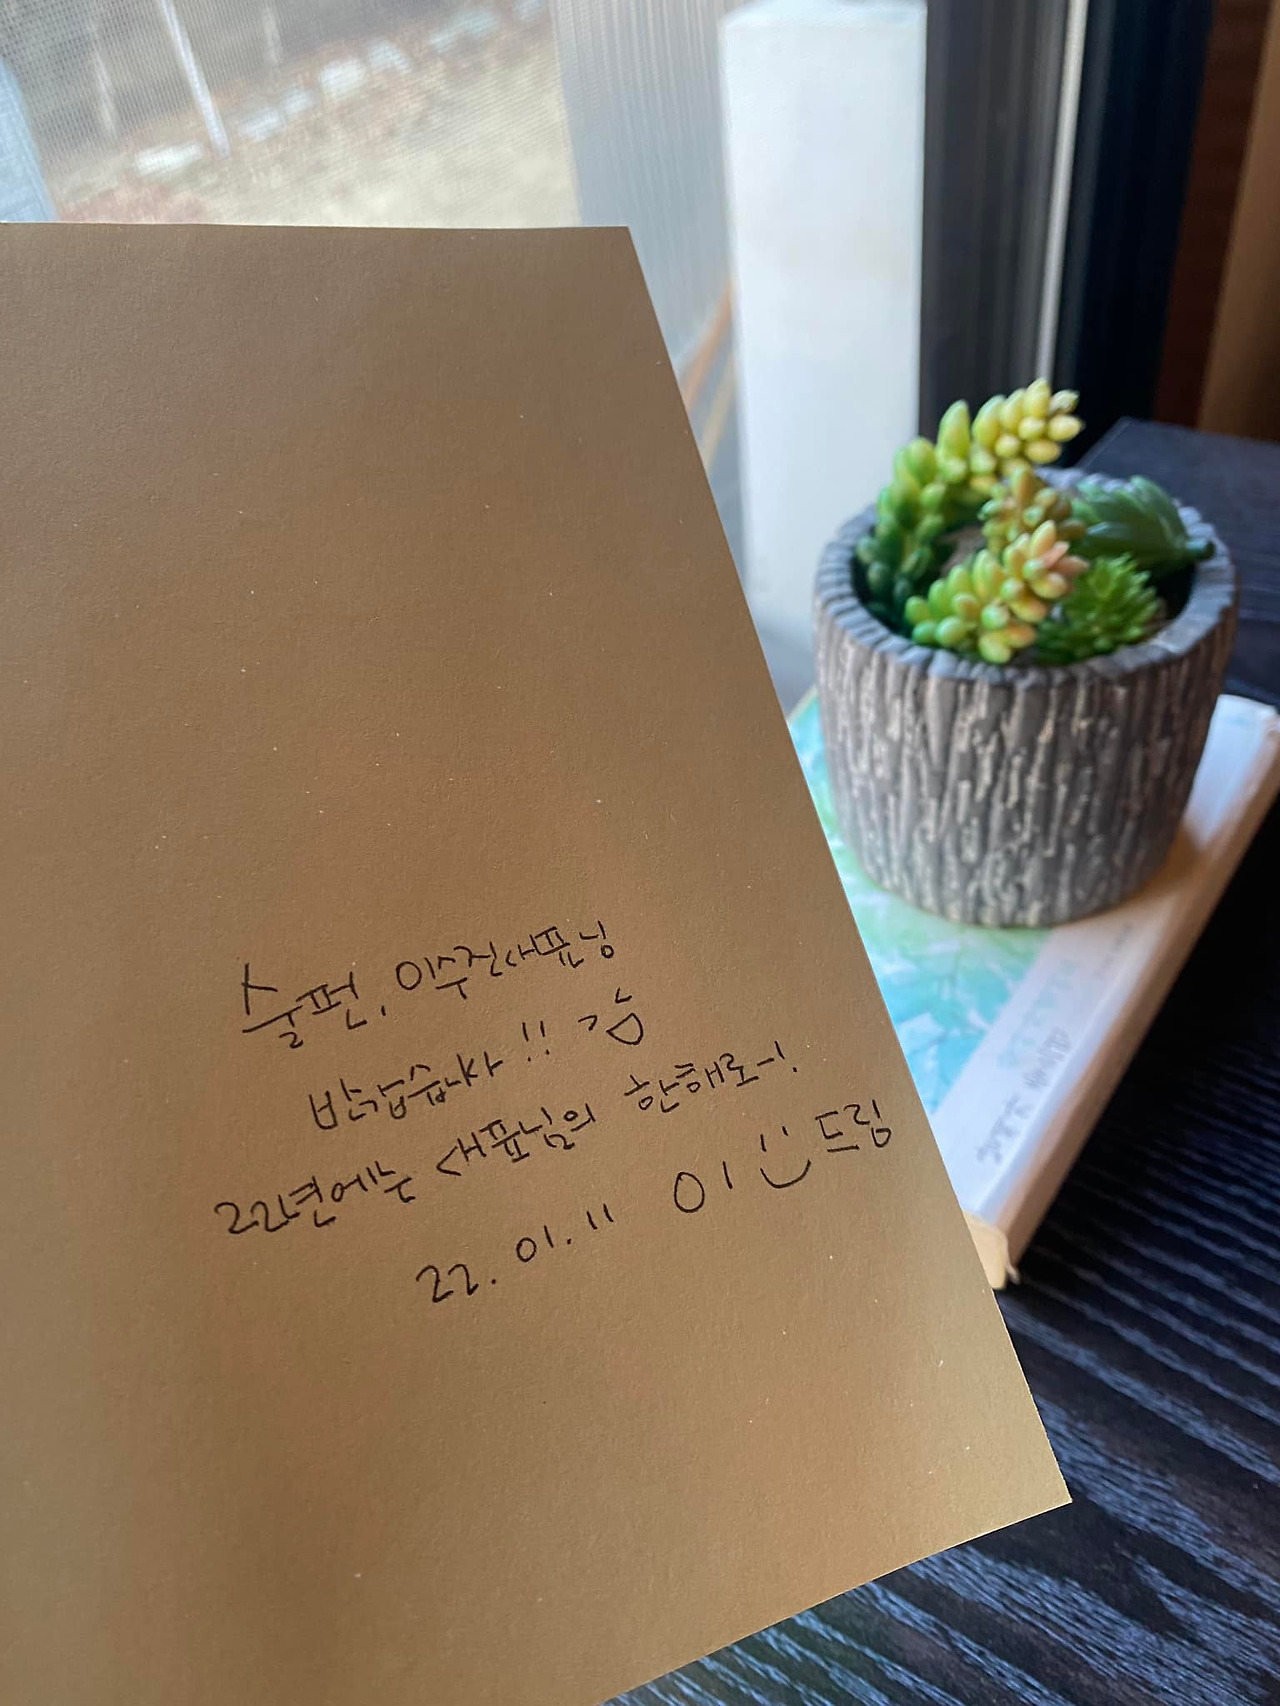 술펀, 이수진대표님
반갑습니다!!
22년에는 대표님의 한해로~!
22. 01. 11 이 드림